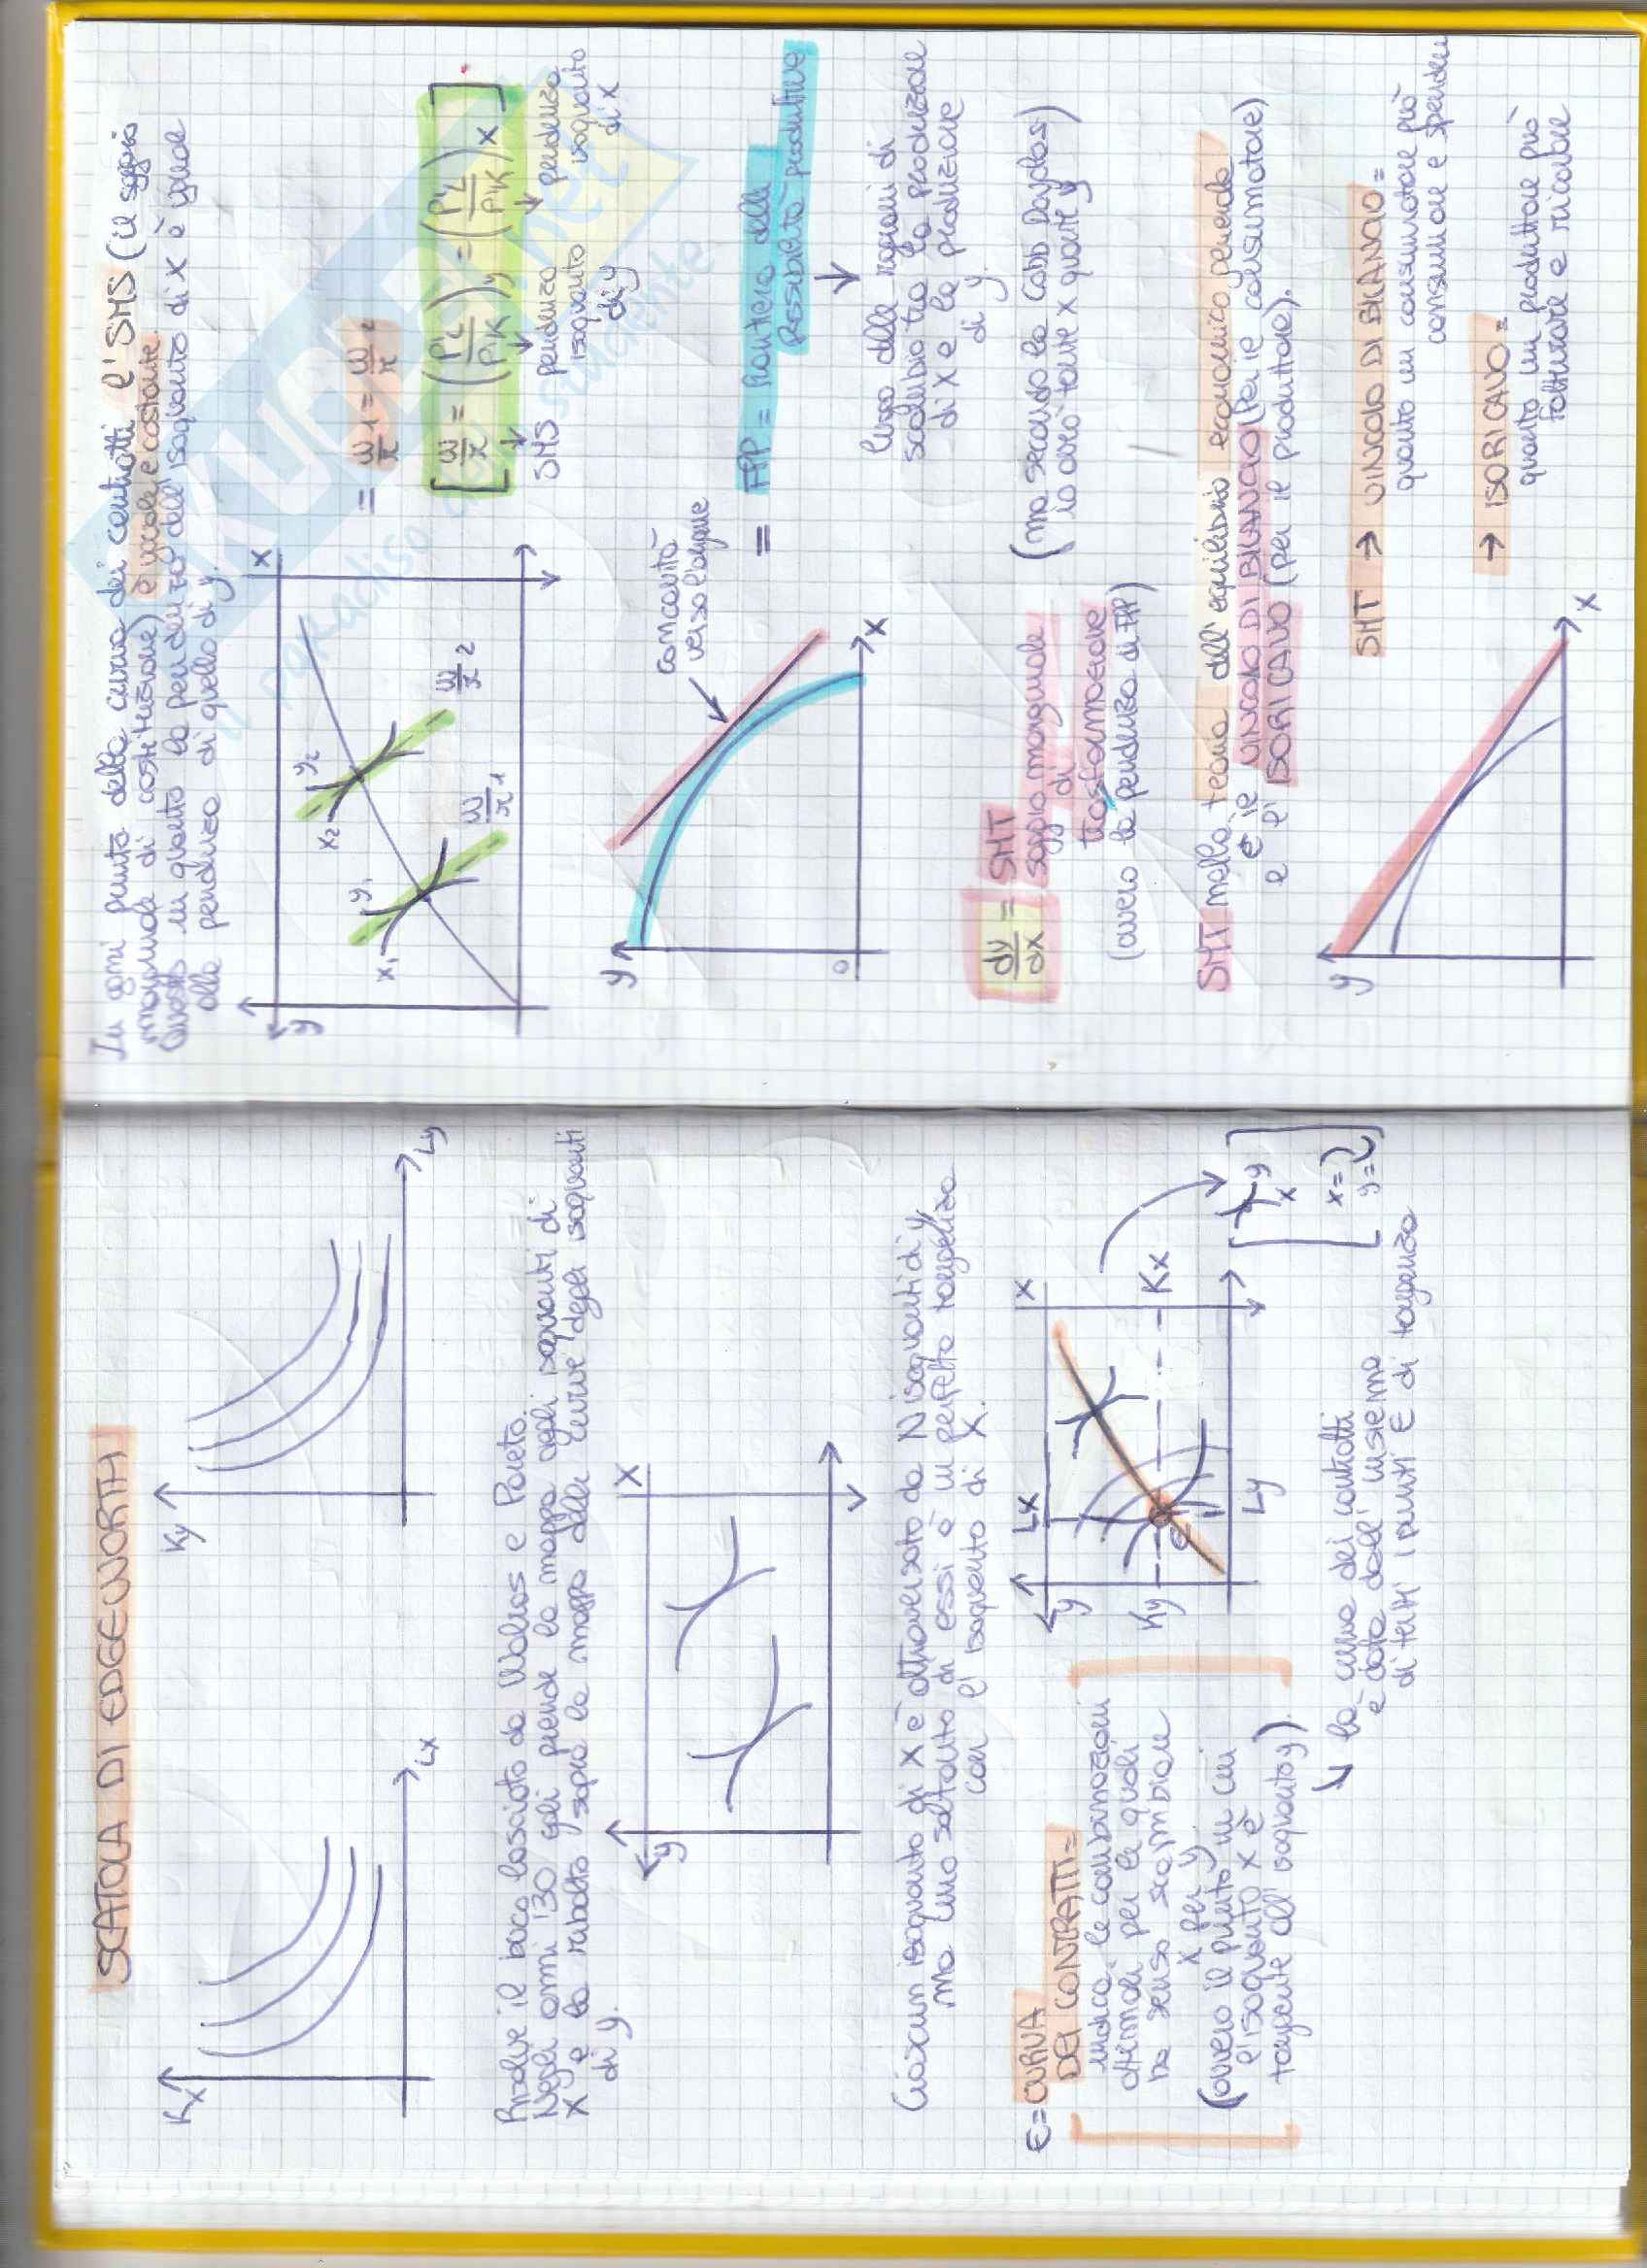 SCATOLA DI EDGEWORTH
Kx
Lx
Ky
Ly
Risolve il buco lasciato da Walras e Pareto.
Negli anni '30 egli prende la mappa degli isoquanti di
X e la ribalta sopra la mappa delle curve degli isoquanti
di y.
y
X
Ciascun isoquanto di X è attraversato da N isoquanti di y,
ma uno soltanto di essi è in perfetta tangenza
con l'isoquanto di X.
E = CURVA
DEI CONTRATTI =
indica le combinazioni
ottimali per le quali
ha senso scambiare
x per y
(ovvero il punto in cui
l'isoquanto x è
tangente all'isoquanto y).
y
Lx
X
Ky
Kx
E
Ly
y
x
x=
y=
la curva dei contratti
è data dall'insieme
di tutti i punti E di tangenza
In ogni punto della curva dei contratti l'SMS (il saggio
marginale di sostituzione) è uguale e costante.
Questo in quanto la pendenza dell'isoquanto di X è uguale
alla pendenza di quello di y.
y
X
x1
y1
x2
y2
w/r 1
w/r 2
= w/r 1 = w/r 2
[ w/r = (P'L/P'K)y = (P'L/P'K)x ]
SMS
pendenza
isoquanto
di y
pendenza
isoquanto
di x
y
O
X
concavità
verso l'origine
= FPP = frontiera delle
possibilità produttive
luogo delle ragioni di
scambio tra la produzione
di X e la produzione
di y.
dy/dx = SMT
saggio marginale
di
trasformazione
(ovvero la pendenza di FPP)
(ma secondo la Cobb Douglas
io avrò tante x quante y)
SMT nella teoria dell'equilibrio economico generale
è il VINCOLO DI BILANCIO (per il consumatore)
e l'ISORICAVO (per il produttore).
y
X
SMT → VINCOLO DI BILANCIO =
quanto un consumatore può
consumare e spendere
→ ISORICAVO =
quanto un produttore può
fatturare e ricavare
SKUOLA.net
il paradiso dello studente